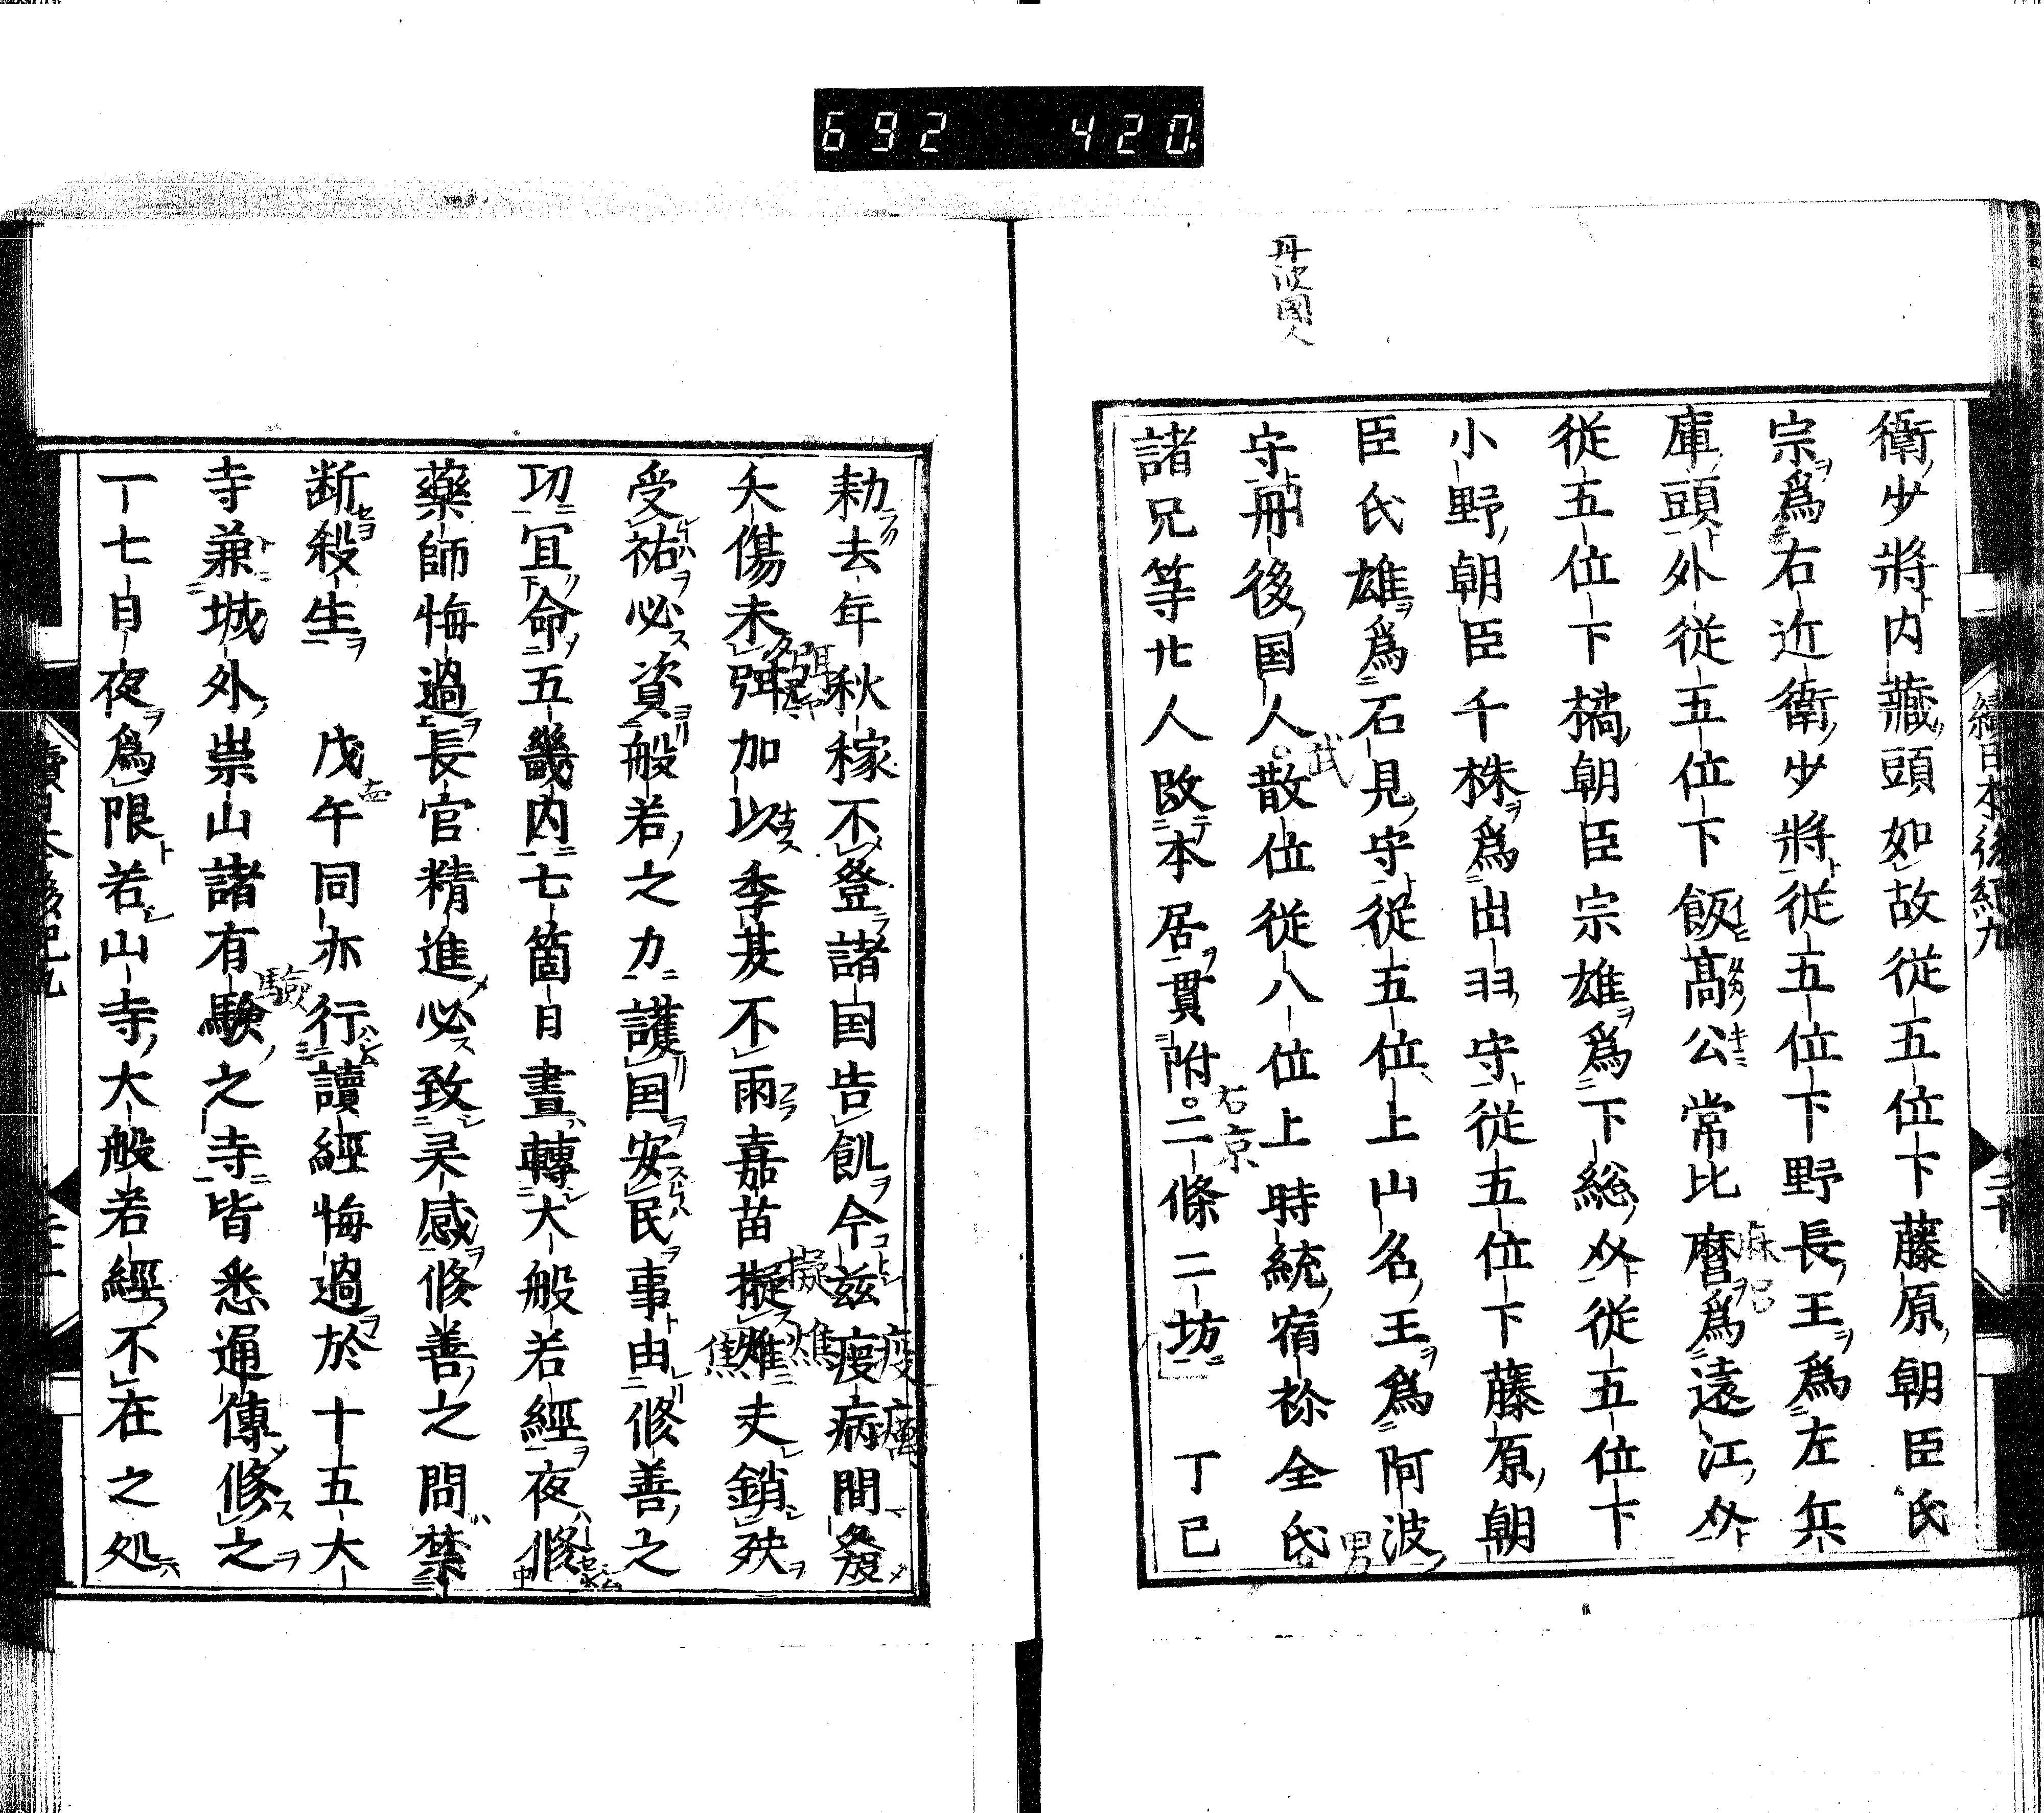 692 420
丹波國人
續日本後紀九
二十
衛少將内藏頭如故從五位下藤原朝臣氏
宗爲右近衛少將從五位下野長王爲左兵
庫頭外從五位下飯髙公常比麿爲遠江介
從五位下橘朝臣宗雄爲下総介從五位下
小野朝臣千株爲出羽守從五位下藤原朝
臣氏雄爲石見守從五位上山名王爲阿波
守丹後国人散位從八位上時統宿祢全氏
諸兄等廿人改本居貫附二條二坊　丁巳
武
右京
麻呂
男
勑去年秋稼不登諸国告飢今兹疫病間發
夭傷未弭加以季𦮼不雨嘉苗擬燋夫銷殃
受祐必資般若之力護国安民事由修善之
㓛冝命五畿内七箇日晝轉大般若經夜修
藥師悔過長官精進必致灵感修善之間禁
断殺生　戊午同亦行讀經悔過於十五大
寺兼城外崇山諸有験之寺皆悉通傳修之
一七日夜爲限若山寺大般若經不在之処
弭
擬
燋
焦
疫癘
驗